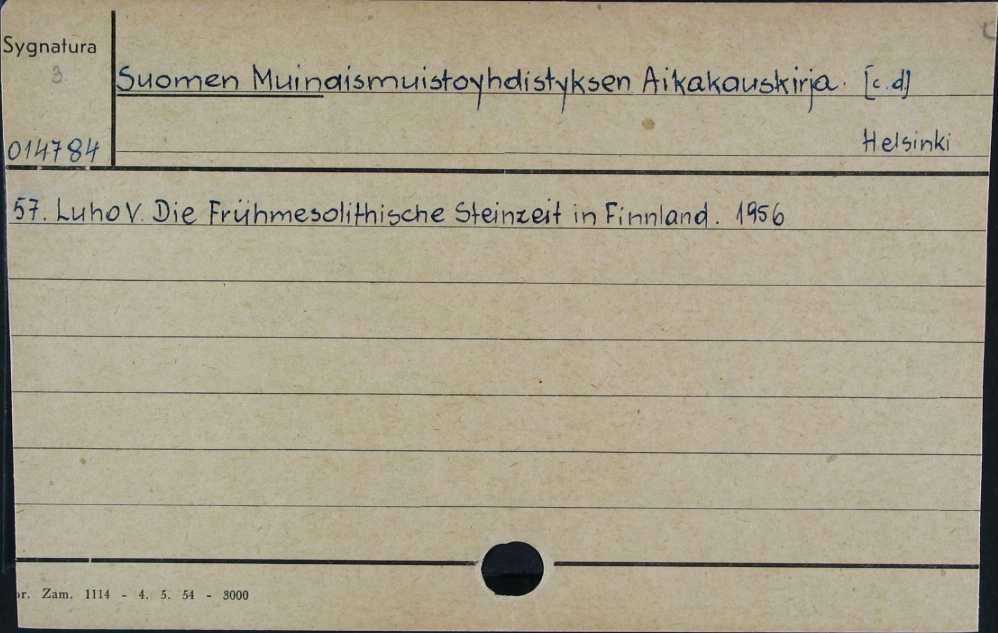 Sygnatura
3
Suomen Muinaismuistoyhdistyksen Aikakauskirja. [c.d.]
014784
Helsinki
57. Luho V. Die Frühmesolithische Steinzeit in Finnland. 1956
Zam. 1114 - 4. 5. 54 - 3000